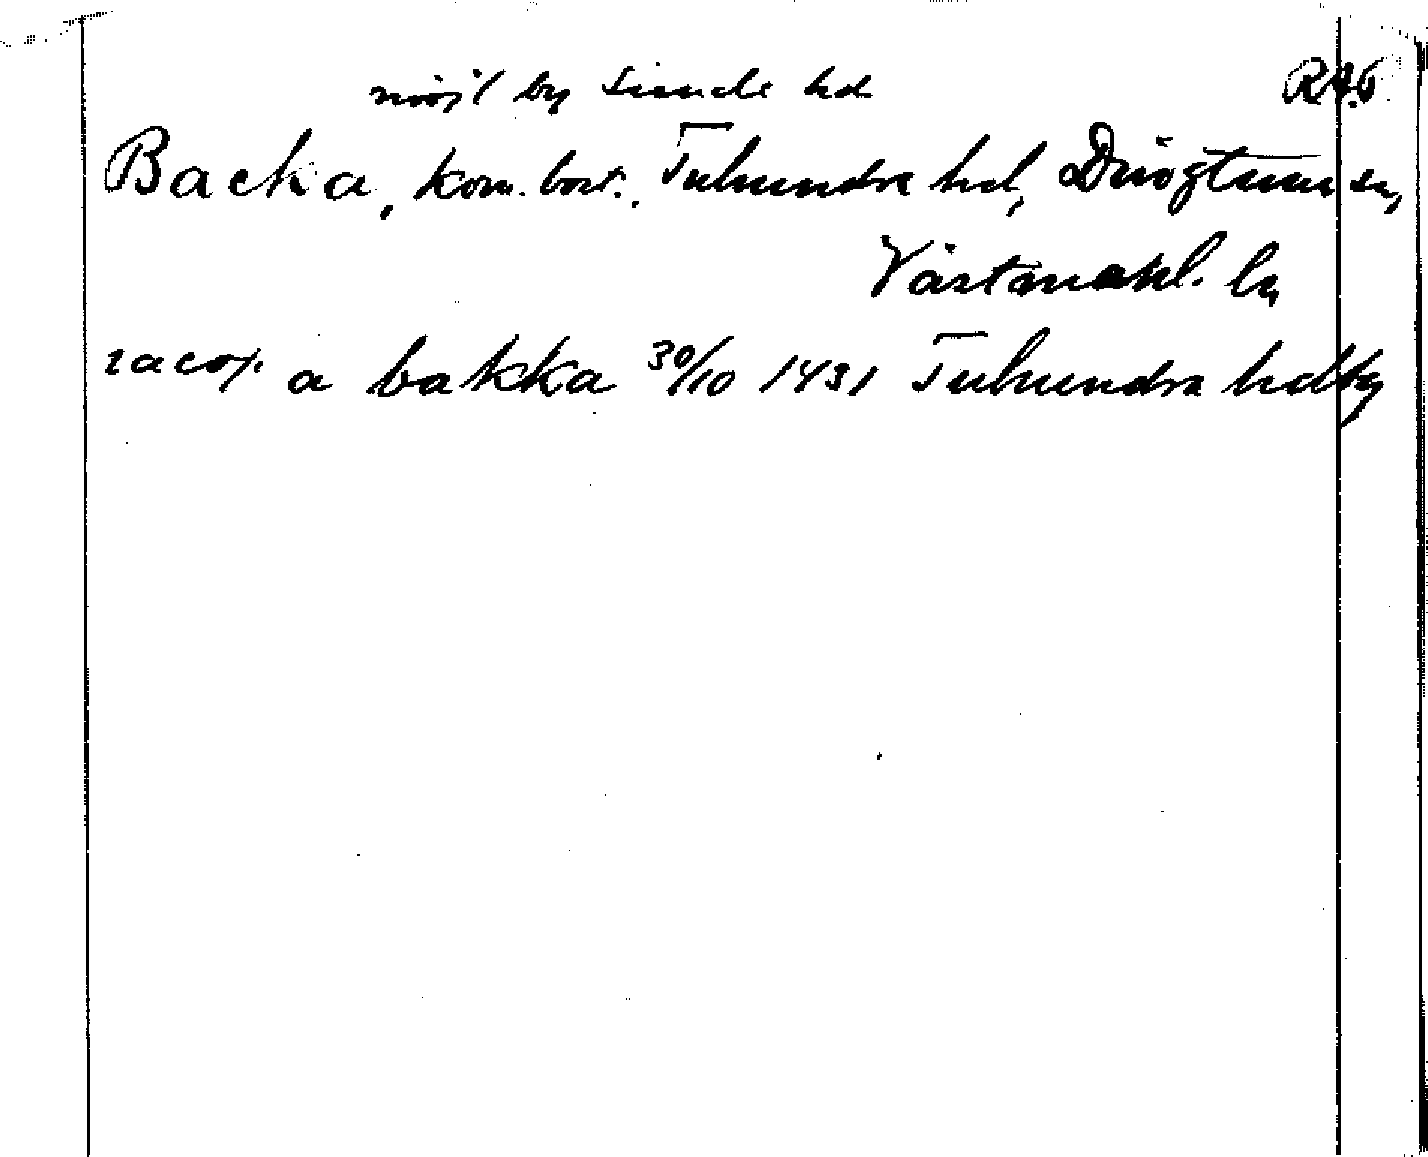 möjl by Simde hd RAö
Backa, kom. bost., Tuhundra hd, Dingtuna sn,
Västmanl. ln
iacop. a bakka 30/10 1431 Tuhundra hdtg